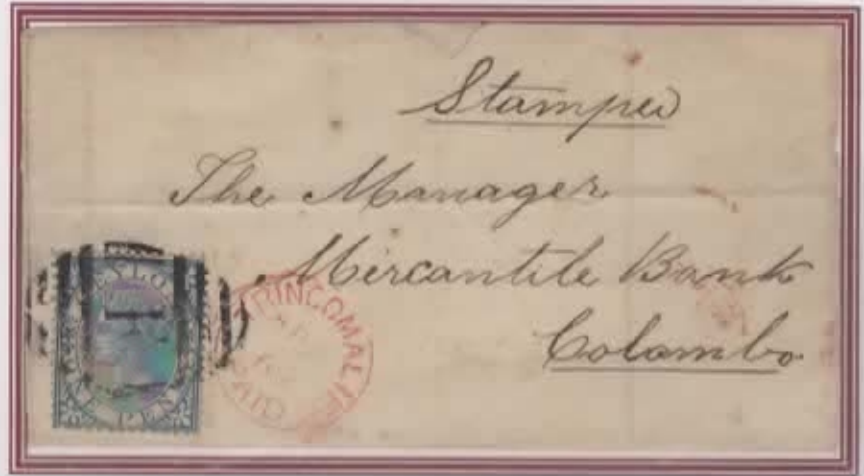 Stamped
The Manager
Mercantile Bank
Colombo
TRINCOMALIE
PAID
CEYLON
PEN